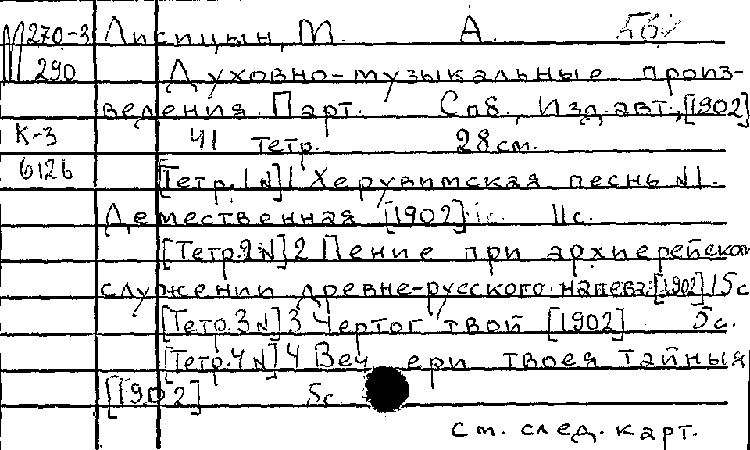 М270-3 Лисицын, М. А.
290 Духовно-музыкальные произ-
ведения Парт. Спб., Изд. авт., [1902]
К-3 41 тетр. 28 см.
6126 [Тетр. 1 N] 1 Херувимская песнь N 1.
Демественная [1902] 11 с.
[Тетр. 2 N] 2 Пение при архиерейском
служении древне-русского напева. [1902] 15 с
[Тетр. 3 N] 3 Чертог твой [1902] 5 с.
[Тетр. 4 N] 4 Вечери твоея тайныя
[1902] 5 с
см. след. карт.